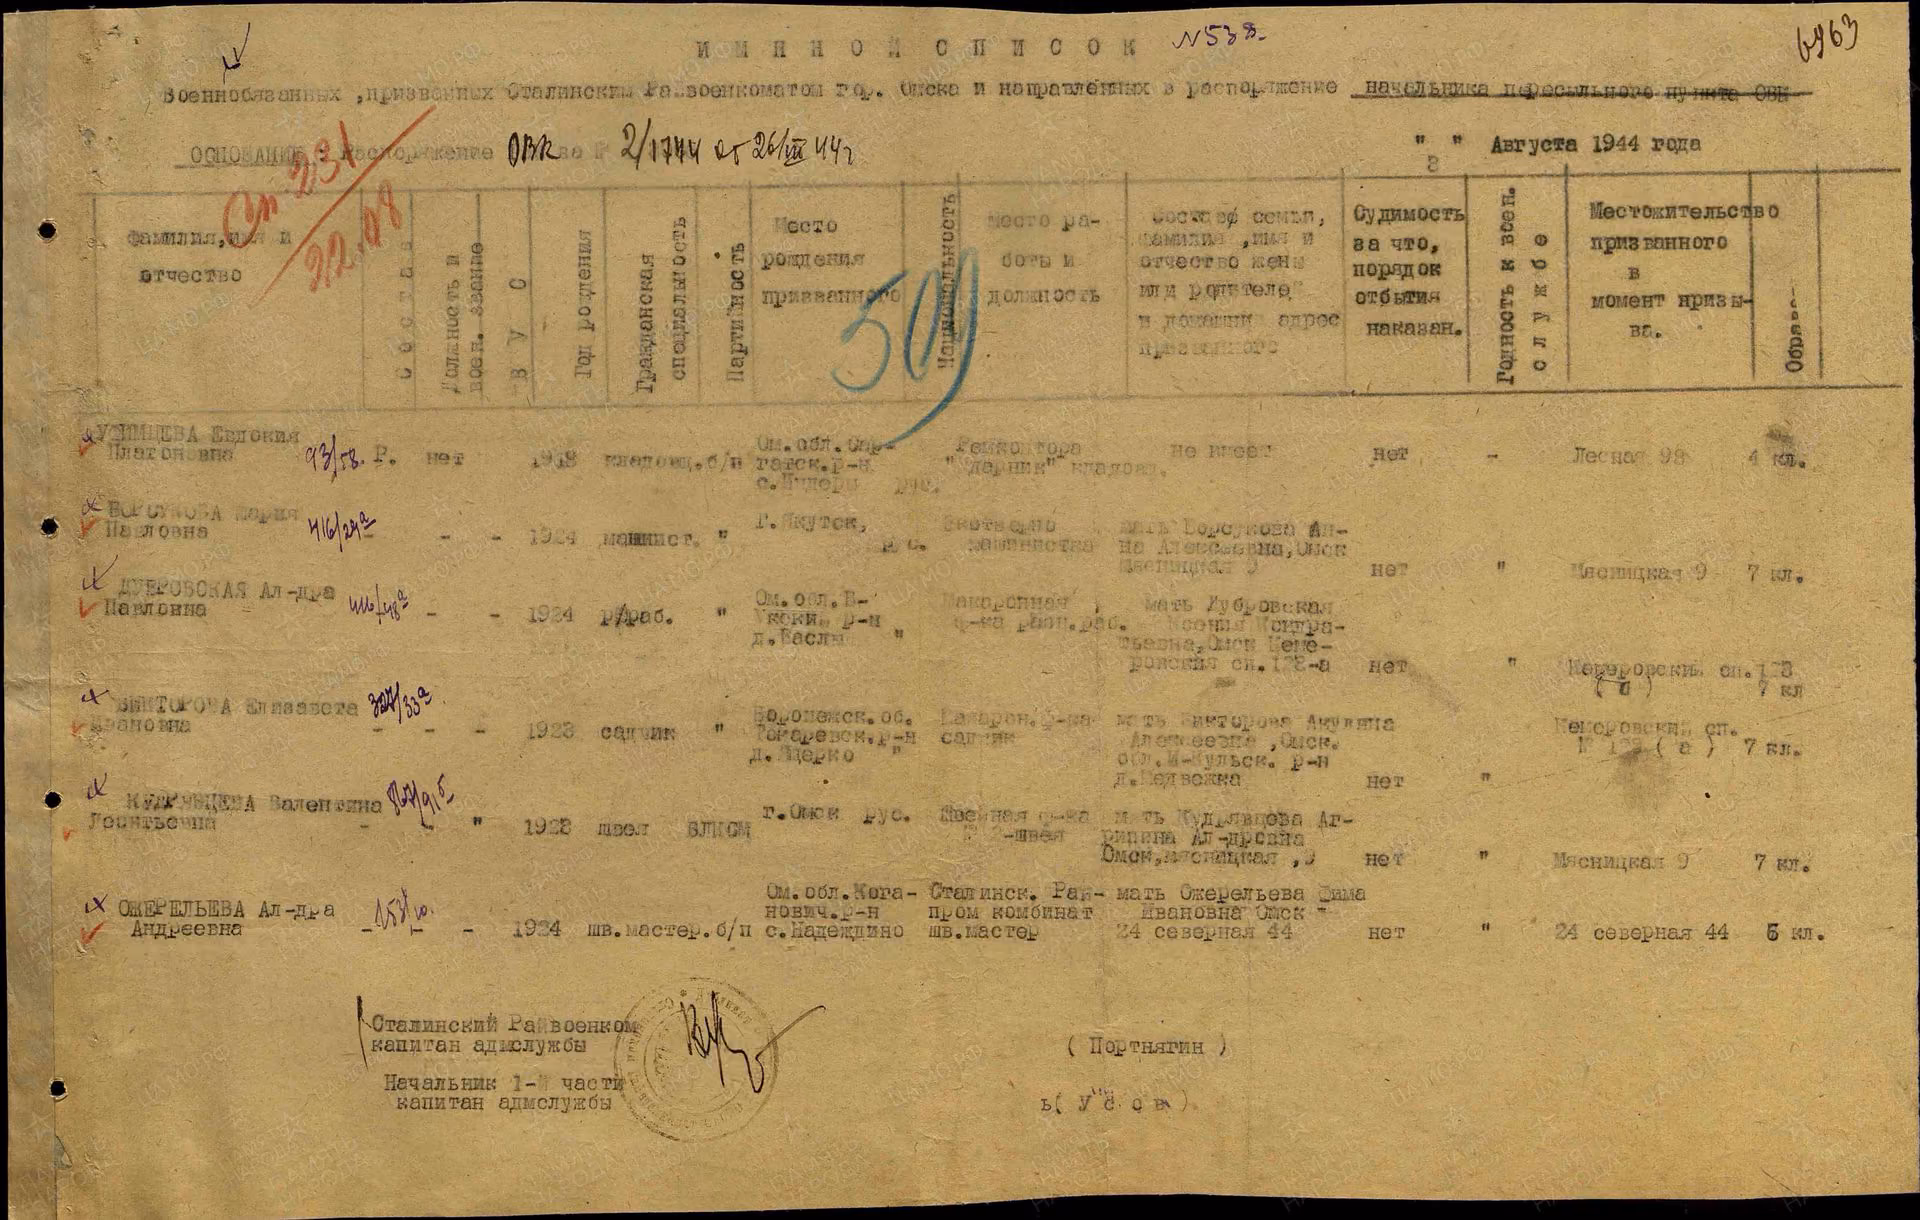 ИМЕННОЙ СПИСОК N538
6963
Военнобязанных ,призванных Сталинским Райвоенкоматом гор. Омска и направленных в распоряжение начальника пересыльного пункта ОВК
ОСНОВАНИЕ : Распоряжение ОВК за № 2/1744 от 26/VII 44г
" 8 " Августа 1944 года
Сп 231
22.08
509
Фамилия,имя и отчество
Состав
Должность и воен. звание
ВУС
Год рождения
Гражданская специальность
Партийность
Место рождения призванного
Национальность
Место работы и должность
Состав семьи, фамилия ,имя и отчество жены или родителей и домашний адрес призванного
Судимость за что, порядок отбытия наказан.
Годность к воен. службе
Местожительство призванного в момент призы-ва.
Образов-
Евдокия
Платоновна 93/58. Р. нет 1918 кладовщ. б/п Ом.обл. гатск.р-н рус. кладовщ. не имеет нет - Лесная 98 4 кл.
БОРСУКОВА Мария
Павловна 416/29а - - - 1924 машинист. " г.Якутск, рус. машинистка мать Борсукова Ан-
на Алексеевна,Омск
Мясницкая 9 нет " Мясницкая 9 7 кл.
ДУБРОВСКАЯ Ал-дра
Павловна 416/48а - - 1924 р/раб. " Ом.обл. р-н " Макаронная ф-ка разн.раб. мать Дубровская
Ксения Кондра-
тьевна,Омск Кеме-
ровский сп.123-а нет " Кемеровский сп.123
(а) 7 кл
ВИКТОРОВА Елизавета 327/33а
Ивановна - - - 1923 садчик " Воронежск.об.
Токаревск.р-н " Макарон.ф-ка
садчик мать Викторова Акулина
Алексеевна ,Омск.
обл.М-Кульск. р-н
д.Медвежка нет " Кемеровский сп.
№ 123 ( а ) 7 кл.
КУДРЯВЦЕВА Валентина 867/91б
Леонтьевна - - " 1923 швея ВЛКСМ г.Омск рус. Швейная ф-ка
швея мать Кудрявцева Аг-
рипина Ал-дровна
Омск,мясницкая ,9 нет " Мясницкая 9 7 кл.
ОЖЕРЕЛЬЕВА Ал-дра 153/10.
Андреевна - - - 1924 шв.мастер. б/п Ом.обл.Кага-
нович.р-н
с.Надеждино Сталинск. Рай-
пром комбинат
шв.мастер мать Ожерельева Фима
Ивановна Омск
24 северная 44 нет " 24 северная 44 6 кл.
Сталинский Райвоенком
капитан админслужбы ( Портнягин )
Начальник 1-й части
капитан адмслужбы ( Усов )